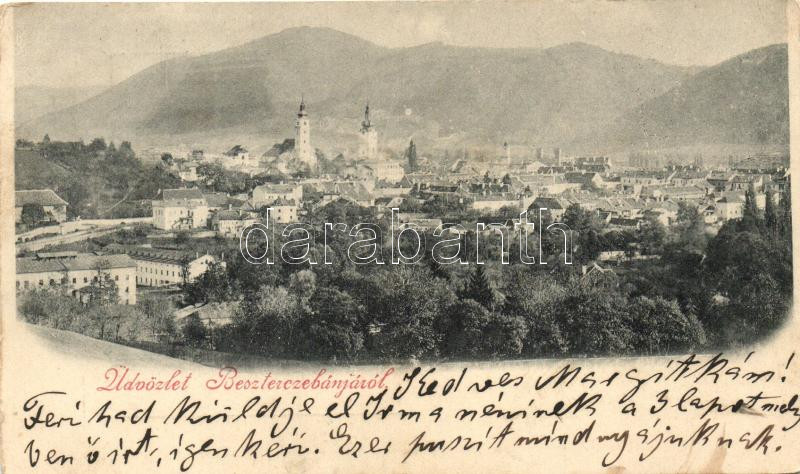 darabanth
Üdvözlet Beszterczebányáról, Kedves Margitkám!
Feri had küldje el Irma néninek a 3 lapot mely
ven ő írt, igen kéri. Ezer puszit mindnyájuknak.